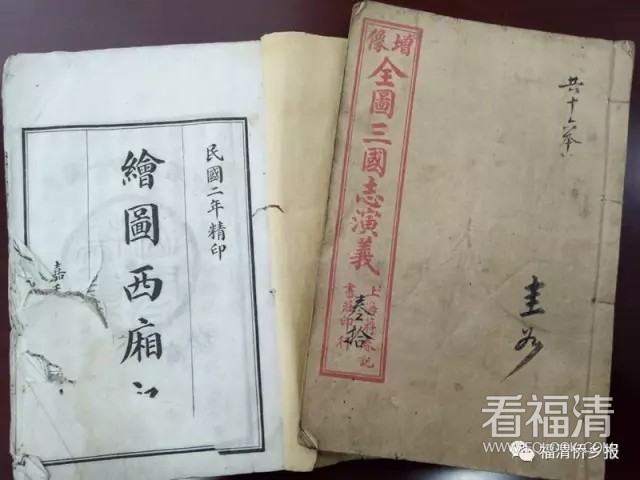 民國二年精印
繪圖西廂記
嘉
增像
全圖三國志演義
上海蔣春記
書莊印行
叁拾
共十六本
圭
看福清
WWW.FQLOOK.COM
福清侨乡报